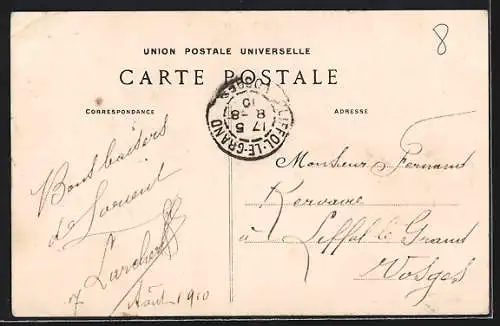 8
UNION POSTALE UNIVERSELLE
CARTE POSTALE
LIFFOL-LE-GRAND
VOSGES
17 5
8 -8
10
CORRESPONDANCE
ADRESSE
Bons baisers
de Lorient
Larcher
Août 1910
Monsieur Fernand
Kervaire
à Liffol le Grand
Vosges